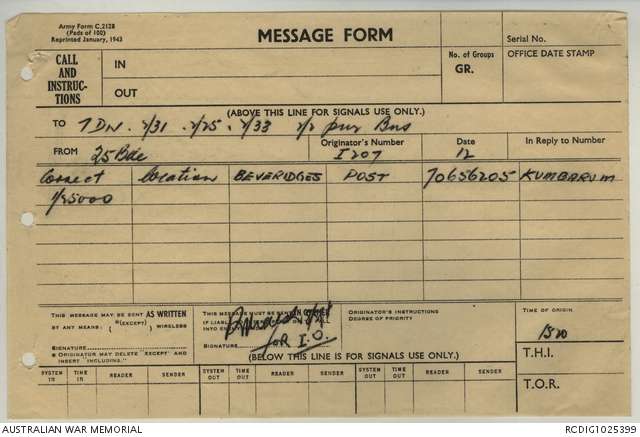 Army Form C.2128
(Pads of 100)
Reprinted January, 1943
MESSAGE FORM
Serial No.
CALL
AND
INSTRUC-
TIONS
IN
OUT
No. of Groups
GR.
OFFICE DATE STAMP
(ABOVE THIS LINE FOR SIGNALS USE ONLY.)
TO 7 DN. 2/31 . 2/25 . 2/33 Bns
FROM 25 Bde
Originator's Number
I 207
Date
12
In Reply to Number
Correct location BEVERIDGES POST 70656205 KUMBARUM
1/25000
THIS MESSAGE MAY BE SENT AS WRITTEN
BY ANY MEANS: (*(EXCEPT) ) WIRELESS
SIGNATURE
* ORIGINATOR MAY DELETE "EXCEPT" AND
INSERT "INCLUDING."
THIS MESSAGE MUST BE SENT IN CIPHER
IF LIABLE
SIGNATURE for I.O.
ORIGINATOR'S INSTRUCTIONS
DEGREE OF PRIORITY
TIME OF ORIGIN
1520
T.H.I.
T.O.R.
(BELOW THIS LINE IS FOR SIGNALS USE ONLY.)
SYSTEM IN TIME IN READER SENDER SYSTEM OUT TIME OUT READER SENDER SYSTEM OUT TIME OUT READER SENDER
AUSTRALIAN WAR MEMORIAL
RCDIG1025399